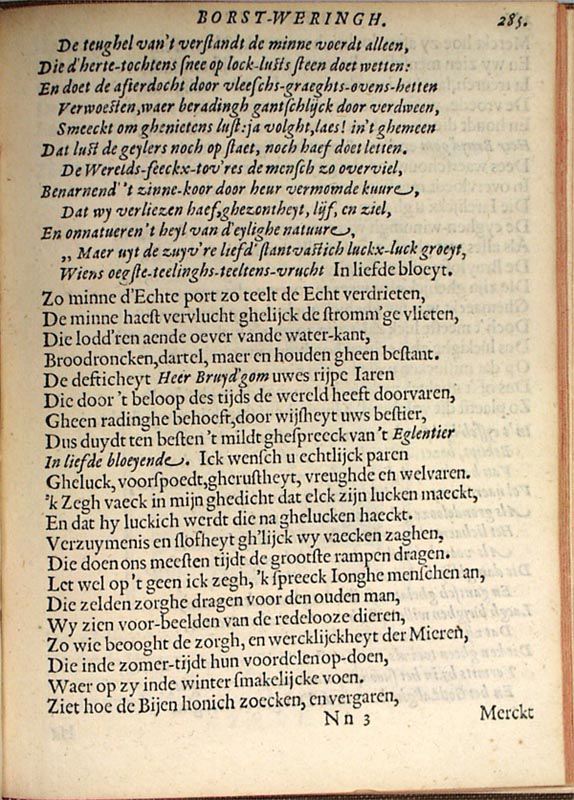 BORST-WERINGH. 285.
De teughel van't verstandt de minne voerdt alleen,
Die d'herte-tochtens snee op lock-lusts steen doet wetten:
En doet de afterdocht door vleeschs-graeghts-ovens-hetten
Verwoesten, waer beradingh gantschlijck door verdween,
Smeeckt om ghenietens lust: ja volght, laes! in't ghemeen
Dat lust de geylers noch op staet, noch haef doet letten.
De Werelds-seeckx-tov'res de mensch zo overviel,
Benarnend' 't zinne-koor door heur vermomde kuure,
Dat wy verliezen haef, ghezontheyt, lijf, en ziel,
En onnatueren't heyl van d'eylighe natuure,
„ Maer uyt de zuyv're liefd' stantvastich luckx-luck groeyt,
Wiens oegste-teelinghs-teeltens-vrucht In liefde bloeyt.
Zo minne d'Echte port zo teelt de Echt verdrieten,
De minne haest vervlucht ghelijck de stromm'ge vlieten,
Die lodd'ren aende oever vande water-kant,
Broodroncken, dartel, maer en houden gheen bestant.
De defticheyt Heer Bruyd'gom uwes rijpe Iaren
Die door 't beloop des tijds de wereld heeft doorvaren,
Gheen radinghe behoeft, door wijsheyt uws bestier,
Dus duydt ten besten 't mildt ghespreeck van't Eglentier
In liefde bloeyende. Ick wensch u echtlijck paren
Gheluck, voorspoedt, gherustheyt, vreughde en welvaren.
'k Zegh vaeck in mijn ghedicht dat elck zijn lucken maeckt,
En dat hy luckich werdt die na ghelucken haeckt.
Verzuymenis en slofheyt gh'lijck wy vaecken zaghen,
Die doen ons meesten tijdt de grootste rampen dragen.
Let wel op 't geen ick zegh, 'k spreeck Ionghe menschen an,
Die zelden zorghe dragen voor den ouden man,
Wy zien voor-beelden van de redelooze dieren,
Zo wie beooght de zorgh, en wercklijckheyt der Mieren,
Die inde zomer-tijdt hun voordelen op-doen,
Waer op zy inde winter smakelijcke voen.
Ziet hoe de Bijen honich zoecken, en vergaren,
Nn 3 Merckt